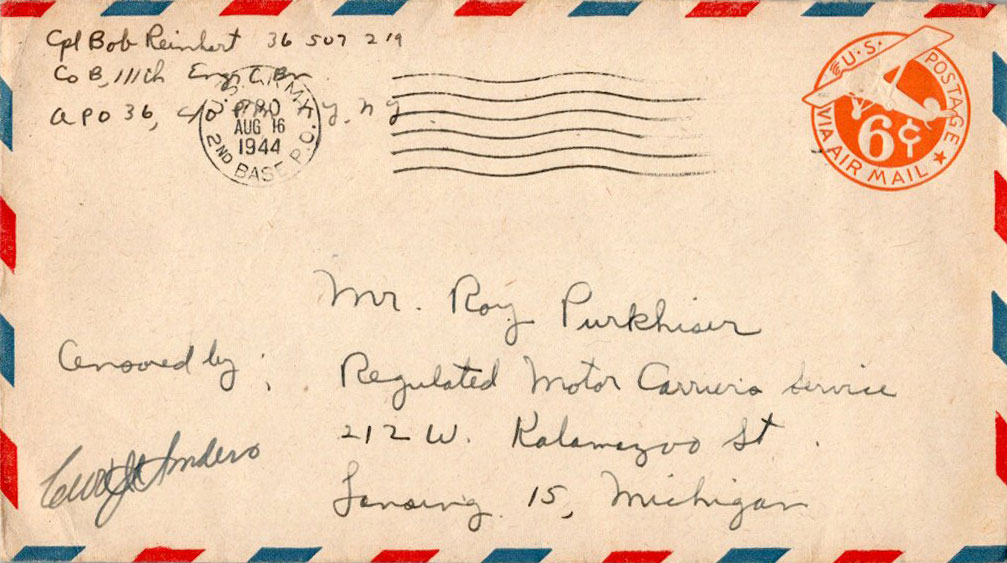 Cpl Bob Reinhart 36 507 219
Co B, 111th Engr C. Bn
APO 36, c/o P.M., N.Y., N.Y
U.S. ARMY
2ND BASE P.O.
AUG 16
1944
U.S. POSTAGE
6¢
VIA AIR MAIL
Mr. Roy Purkhiser
Censored by:
Regulated Motor Carriers Service
212 W. Kalamazoo St.
Lansing 15, Michigan